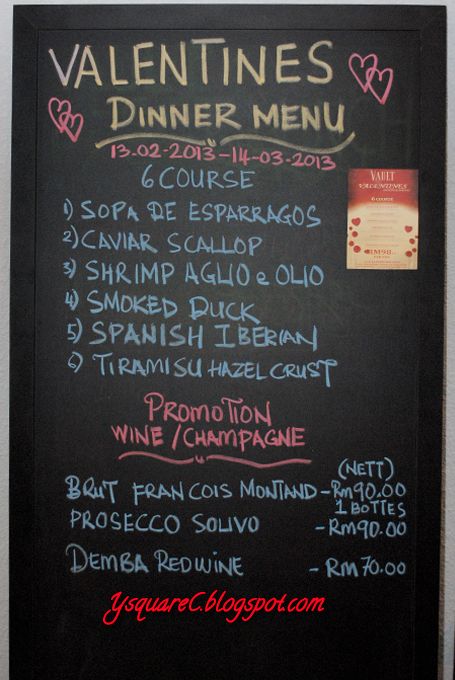 VALENTINES
DINNER MENU
13-02-2013-14-03-2013
6 COURSE
1) SOPA DE ESPARRAGOS
2) CAVIAR SCALLOP
3) SHRIMP AGLIO e OLIO
4) SMOKED DUCK
5) SPANISH IBERIAN
6) TIRAMISU HAZEL CRUST
VALENTINES
6 COURSE
PROMOTION
WINE/CHAMPAGNE
(NETT)
BRUT FRANCOIS MONTAND - Rm90.00
1 BOTTES
PROSECCO SOLIVO - Rm90.00
DEMBA REDWINE - Rm70.00
YsquareC.blogspot.com